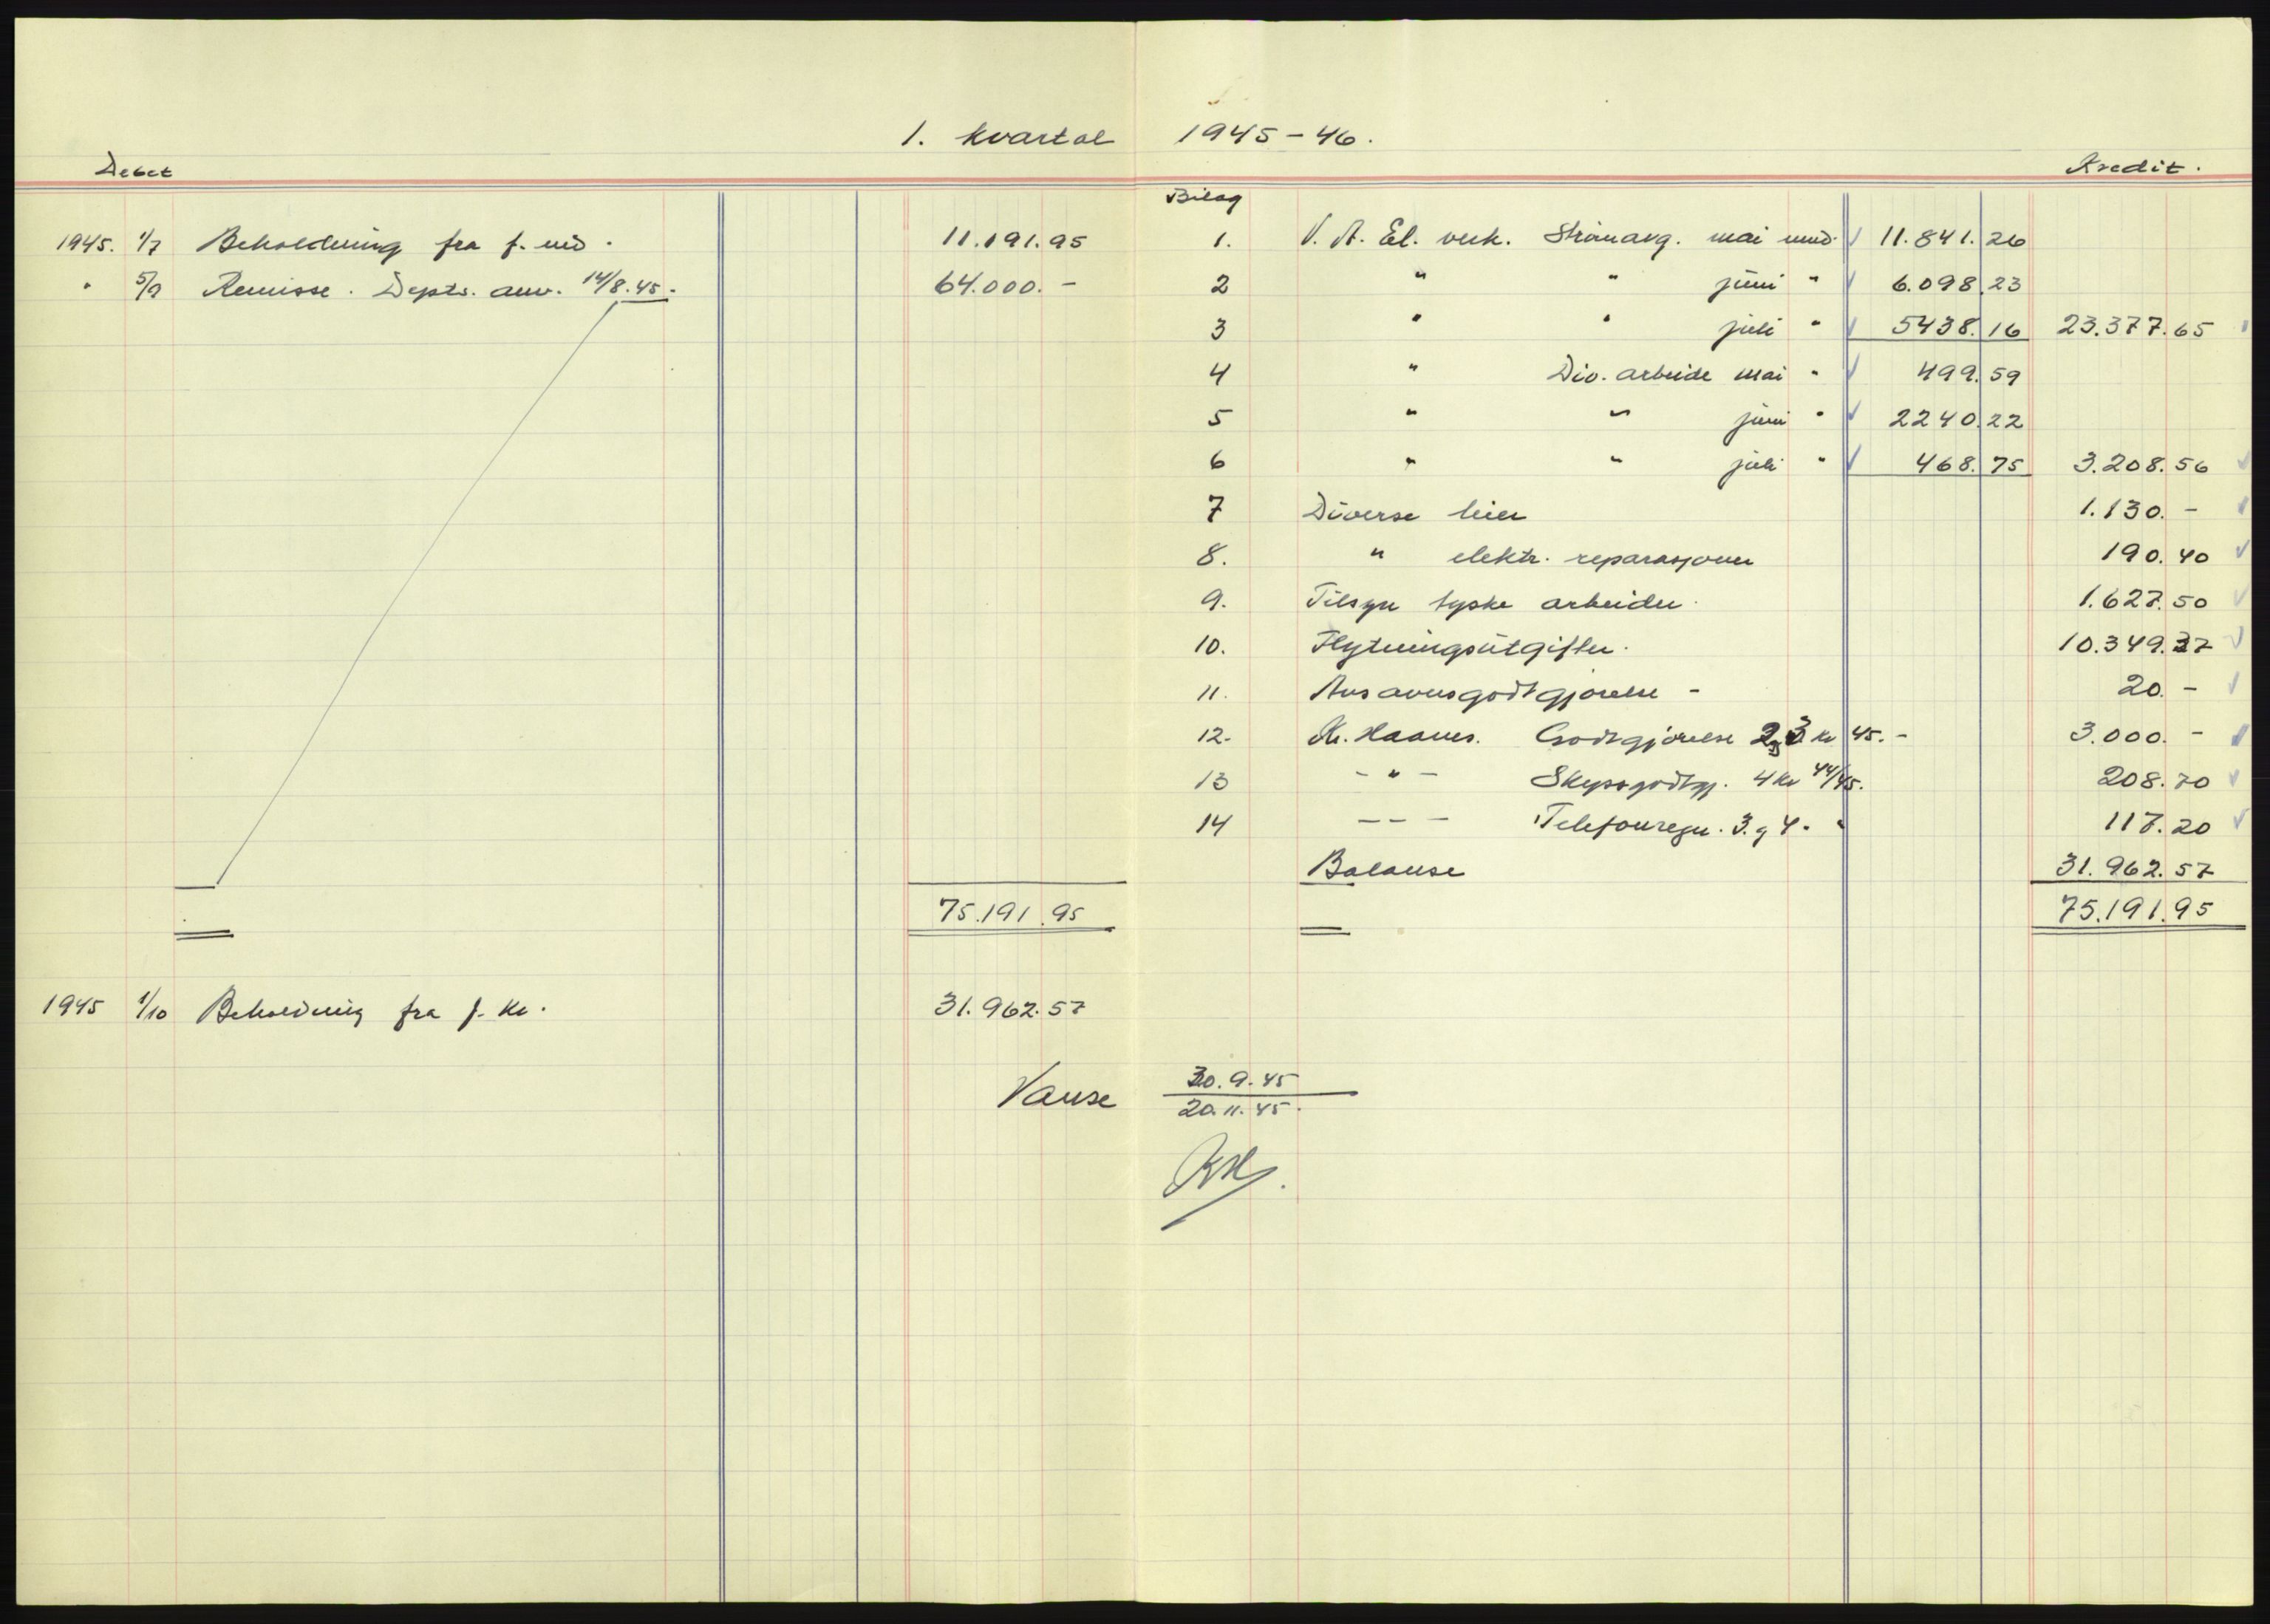 1. kvartal 1945-46.
Debet Kredit.
Bilag
1945. 1/7 Beholdning fra f. md. 11.191.95
" 5/9 Remisse. Depts. anv. 14/8.45. 64.000.-
75.191.95
1945 1/10 Beholdning fra f. kv. 31.962.57
1. V. A. El. verk. Strømavg. mai mnd. 11.841.26
2 " " juni " 6.098.23
3 " " juli " 5438.16 23.377.65
4 " Div. arbeide mai " 499.59
5 " " juni " 2240.22
6 " " juli " 468.75 3.208.56
7 Diverse leier 1.130.-
8. " elektr. reparasjoner 190.40
9. Tilsyn tyske arbeider. 1.627.50
10. Flytningsutgifter. 10.349.37
11. Ansvarsgodtgjørelse - 20.-
12. Kr. Haanes. Godtgjørelse 2 3 kv 45.- 3.000.-
13 - " - Skyssgodtgj. 4 kv 44/45. 208.70
14 - - - Telefonregn. 3. g 4. " 117.20
Balanse 31.962.57
75.191.95
Vanse 30.9.45
20.11.45.